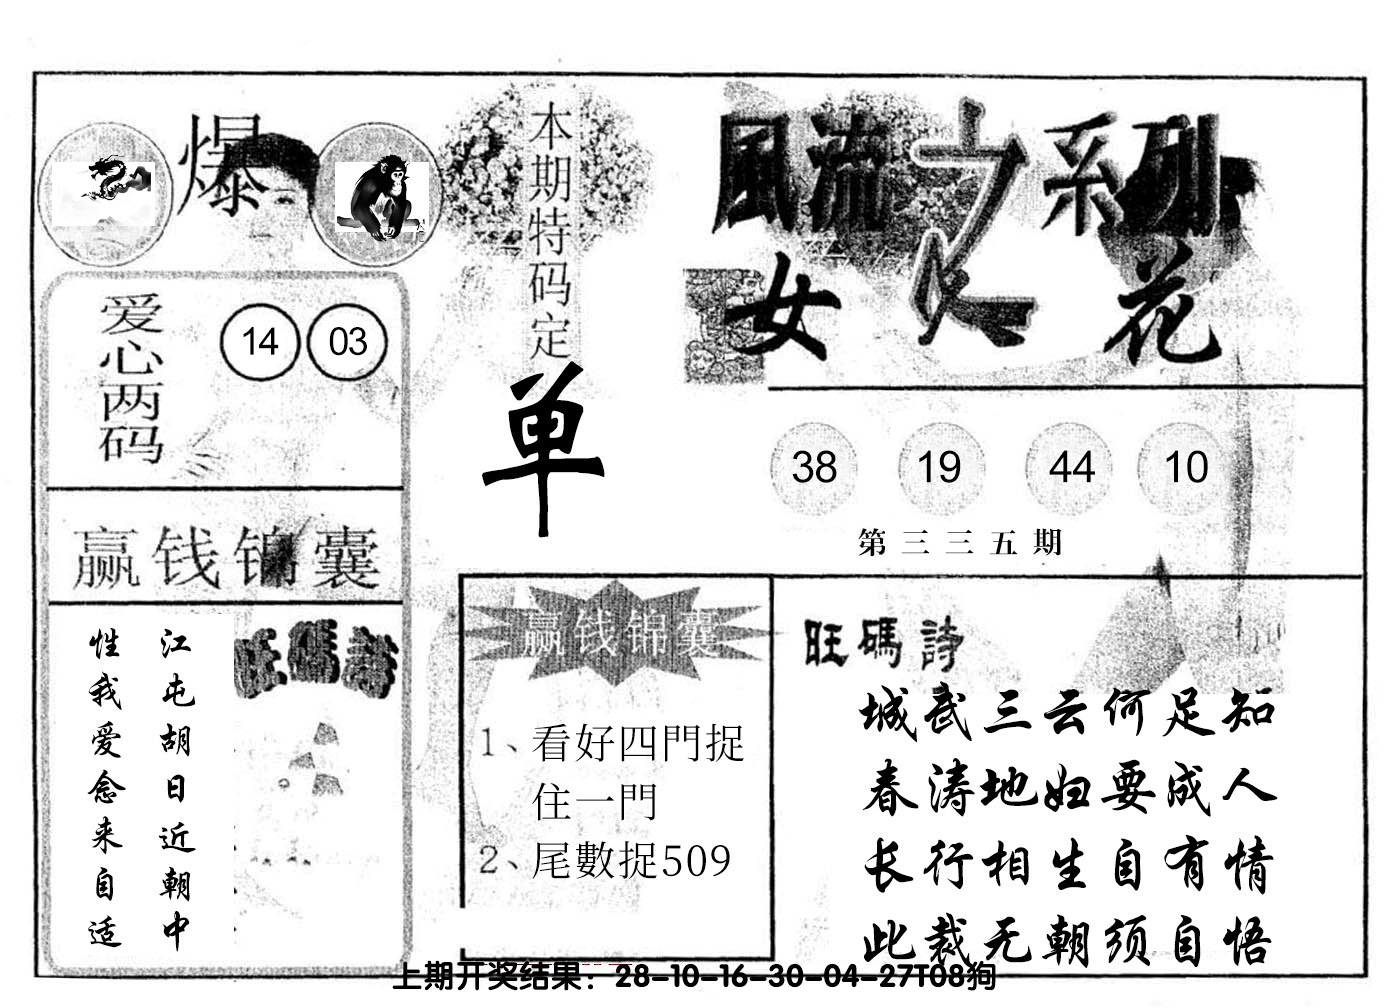 爆
本期特码定
单
風流之系列
女人花
爱心两码
14 03
赢钱锦囊
江屯胡日近朝中
性我爱念来自适
旺碼詩
38 19 44 10
第三三五期
赢钱锦囊
1、看好四門捉
住一門
2、尾數捉509
旺碼詩
城武三云何足知
春涛地妇要成人
长行相生自有情
此裁无朝须自悟
上期开奖结果：28-10-16-30-04-27T08狗